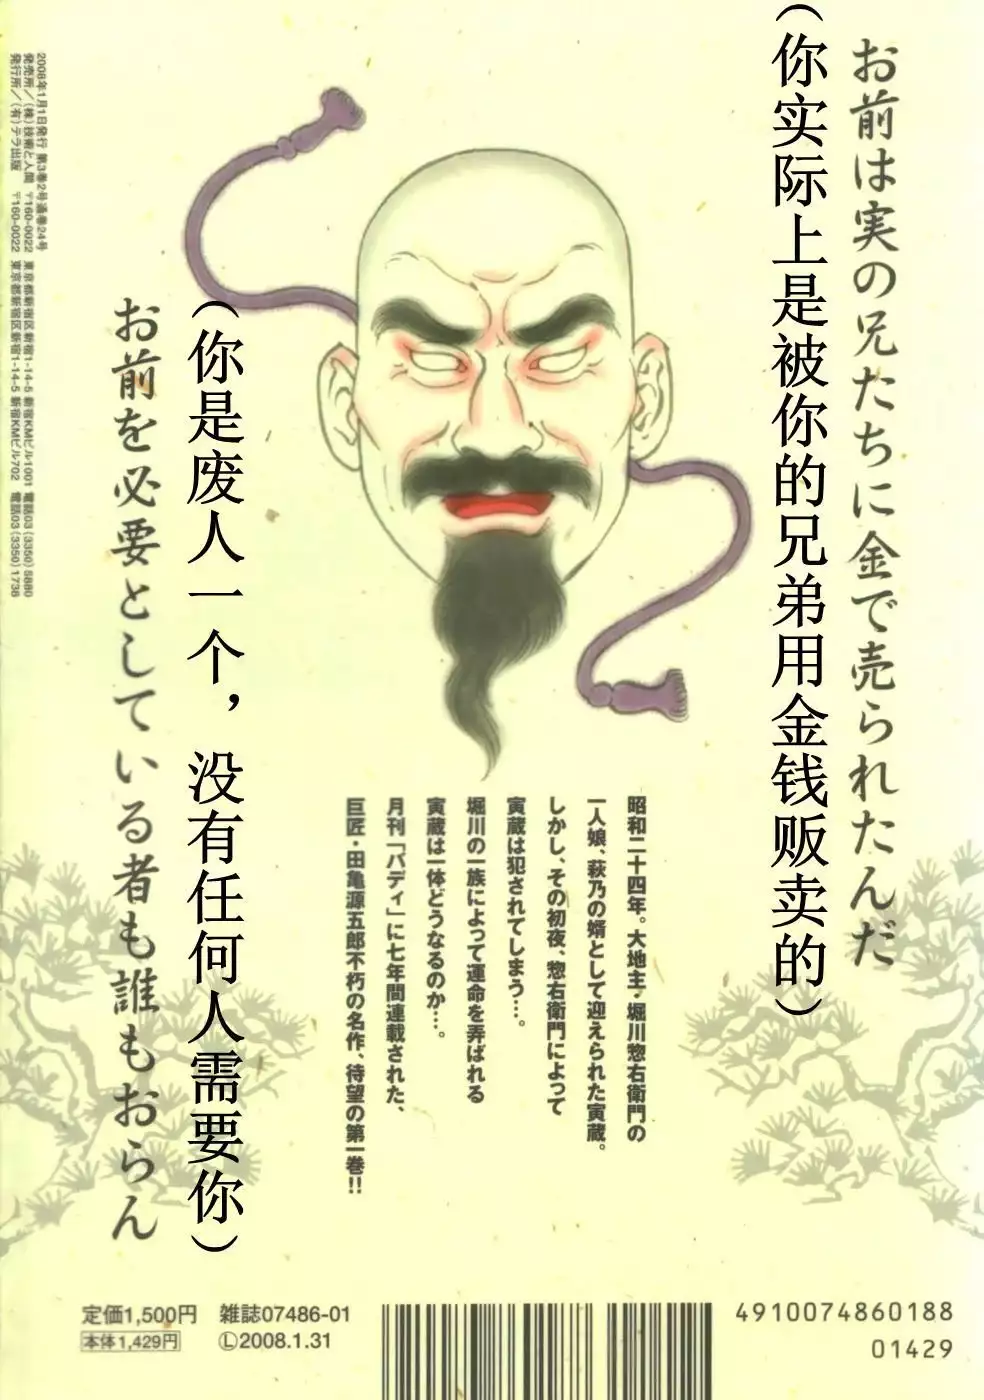 お前は実の兄たちに金で売られたんだ
（你实际上是被你的兄弟用金钱贩卖的）
昭和二十四年。大地主・堀川惣右衛門の
一人娘、萩乃の婿として迎えられた寅蔵。
しかし、その初夜、惣右衛門によって
寅蔵は犯されてしまう…。
堀川の一族によって運命を弄ばれる
寅蔵は一体どうなるのか…。
月刊「バディ」に七年間連載された、
巨匠・田亀源五郎不朽の名作、待望の第一巻!!
（你是废人一个，没有任何人需要你）
お前を必要としている者も誰もおらん
2008年1月1日発行 第3巻2号通巻24号
発売所／(株)技術と人間 〒160-0022 東京都新宿区新宿1-14-5 新宿KMビル1001 電話03(3350)5880
発行所／(有)テラ出版 〒160-0022 東京都新宿区新宿1-14-5 新宿KMビル702 電話03(3350)1736
定価1,500円 雑誌07486-01
本体1,429円 Ⓛ2008.1.31
4910074860188
01429